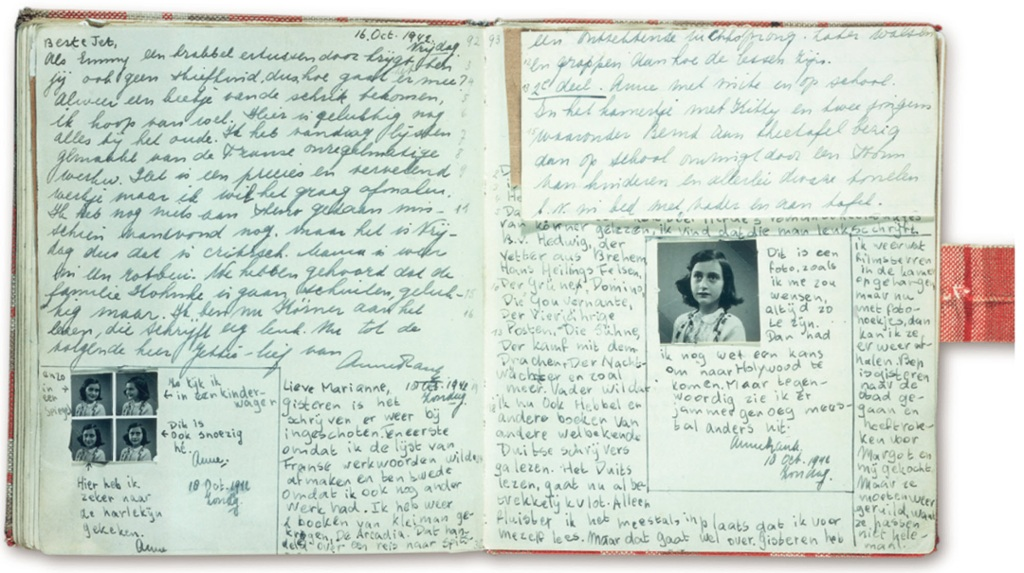 16 Oct. 1942
Vrijdag
Beste Jet,
Als Emmy een krabbel ertussen door krijgt dan
jij ook geen stiefkind, dus hoe gaat er mee?
Alweer een beetje van de schrik bekomen,
ik hoop van wel. Hier is gelukkig nog
alles bij het oude. Ik heb vandaag lijsten
gemaakt van de Franse onregelmatige
werkw. Het is een precies en vervelend
werkje maar ik wil het graag afmaken.
Ik heb nog niets aan Steno gedaan mis-
schien vanavond nog, maar het is Vrij-
dag dus dat is critisch. Mama is weer
in een rotbui. We hebben gehoord dat de
familie is gaan schuilen, geluk-
kig maar. Ik ben nu Körner aan het
lezen, die schrijft erg leuk. Nu tot de
volgende keer Jettie-lief van
Anne Frank
en zo
in
een
Nu kijk ik
in een kinder-
wagen
Dit is
ook snoezig
hè.
Anne.
18 Oct. 1942
Zondag
Hier heb ik
zeker naar
ze harlekijn
gekeken.
Anne
Lieve Marianne,
18 Oct. 1942
Zondag
gisteren is het
schrijven er weer bij
ingeschoten. Ten eerste
omdat ik de lijst van
Franse werkwoorden wilde
afmaken en ten twede
omdat ik ook nog ander
werk had. Ik heb weer
2 boeken van kleiman ge-
kregen, De Arcadia. Dat han-
delt over een reis naar
92 93
een ontzettende luchtsprong. Later walsen
en grappen aan hoe de lessen zijn.
2e deel. Anne met visite en op school.
In het kamertje met Kitty en twee jongens
waaronder Bernd aan theetafel bezig
dan op school omringd door een stoom
van kinderen en allerlei dwaze tonelen
b.v. in bed met vader en aan tafel.
van körner gelezen, ik vind dat die man leuk schrijft.
B.v. Hedwig, der
Vetter aus Bremen,
Hans Heilings Felsen,
Der Grüne Domino,
Die Gouvernante,
Der Vierjährige
Posten, Die Sühne,
Der kampf mit dem
Drachen, Der Nacht-
wächter en zoal
meer. Vader wil dat
ik nu ook Hebbel en
andere boeken van
andere welbekende
Duitse schrijvers
ga lezen. Het Duits
lezen, gaat nu al be-
trekkelijk vlot. Alleen
fluister ik het meestal, in plaats dat ik voor
mezelf lees. Maar dat gaat wel over. gisteren heb
Dit is een
foto, zoals
ik me zou
wensen,
altijd zo
te zijn.
Dan had
ik nog wel een kans
om naar Holywood te
komen. Maar tegen-
woordig zie ik er
jammer genoeg mees-
tal anders uit.
Anne Frank.
18 Oct. 1942
Zondag.
ik veel
filmsterren
in de kamer
opgehangen,
maar nu
met foto-
hoekjes, dan
kan ik ze,
er weer af-
halen. Bep
is gisteren
naar de
stad ge-
gaan en
heeft rok-
ken voor
Margot en
mij gekocht.
Maar ze
moeten weer
geruild, want
ze passen
niet hele-
maal.